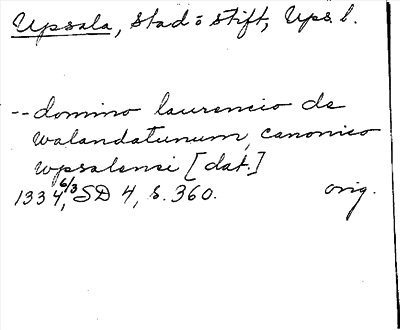 Upsala, stad o stift, Ups. l.
-- domino laurencio de
walandatunum, canonico
wpsalensi [dat.]
1334 6/3, SD 4, s. 360. orig.